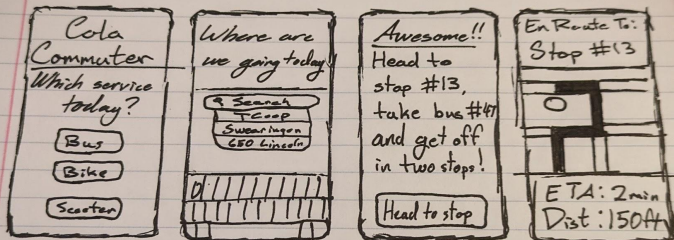 Cola
Commuter
Which service
today?
Bus
Bike
Scooter
Where are
we going today
Search
TCoop
Swearingen
650 Lincoln
Awesome!!
Head to
stop #13,
take bus #47
and get off
in two stops!
Head to stop
En Route To:
Stop #13
ETA: 2min
Dist: 150ft